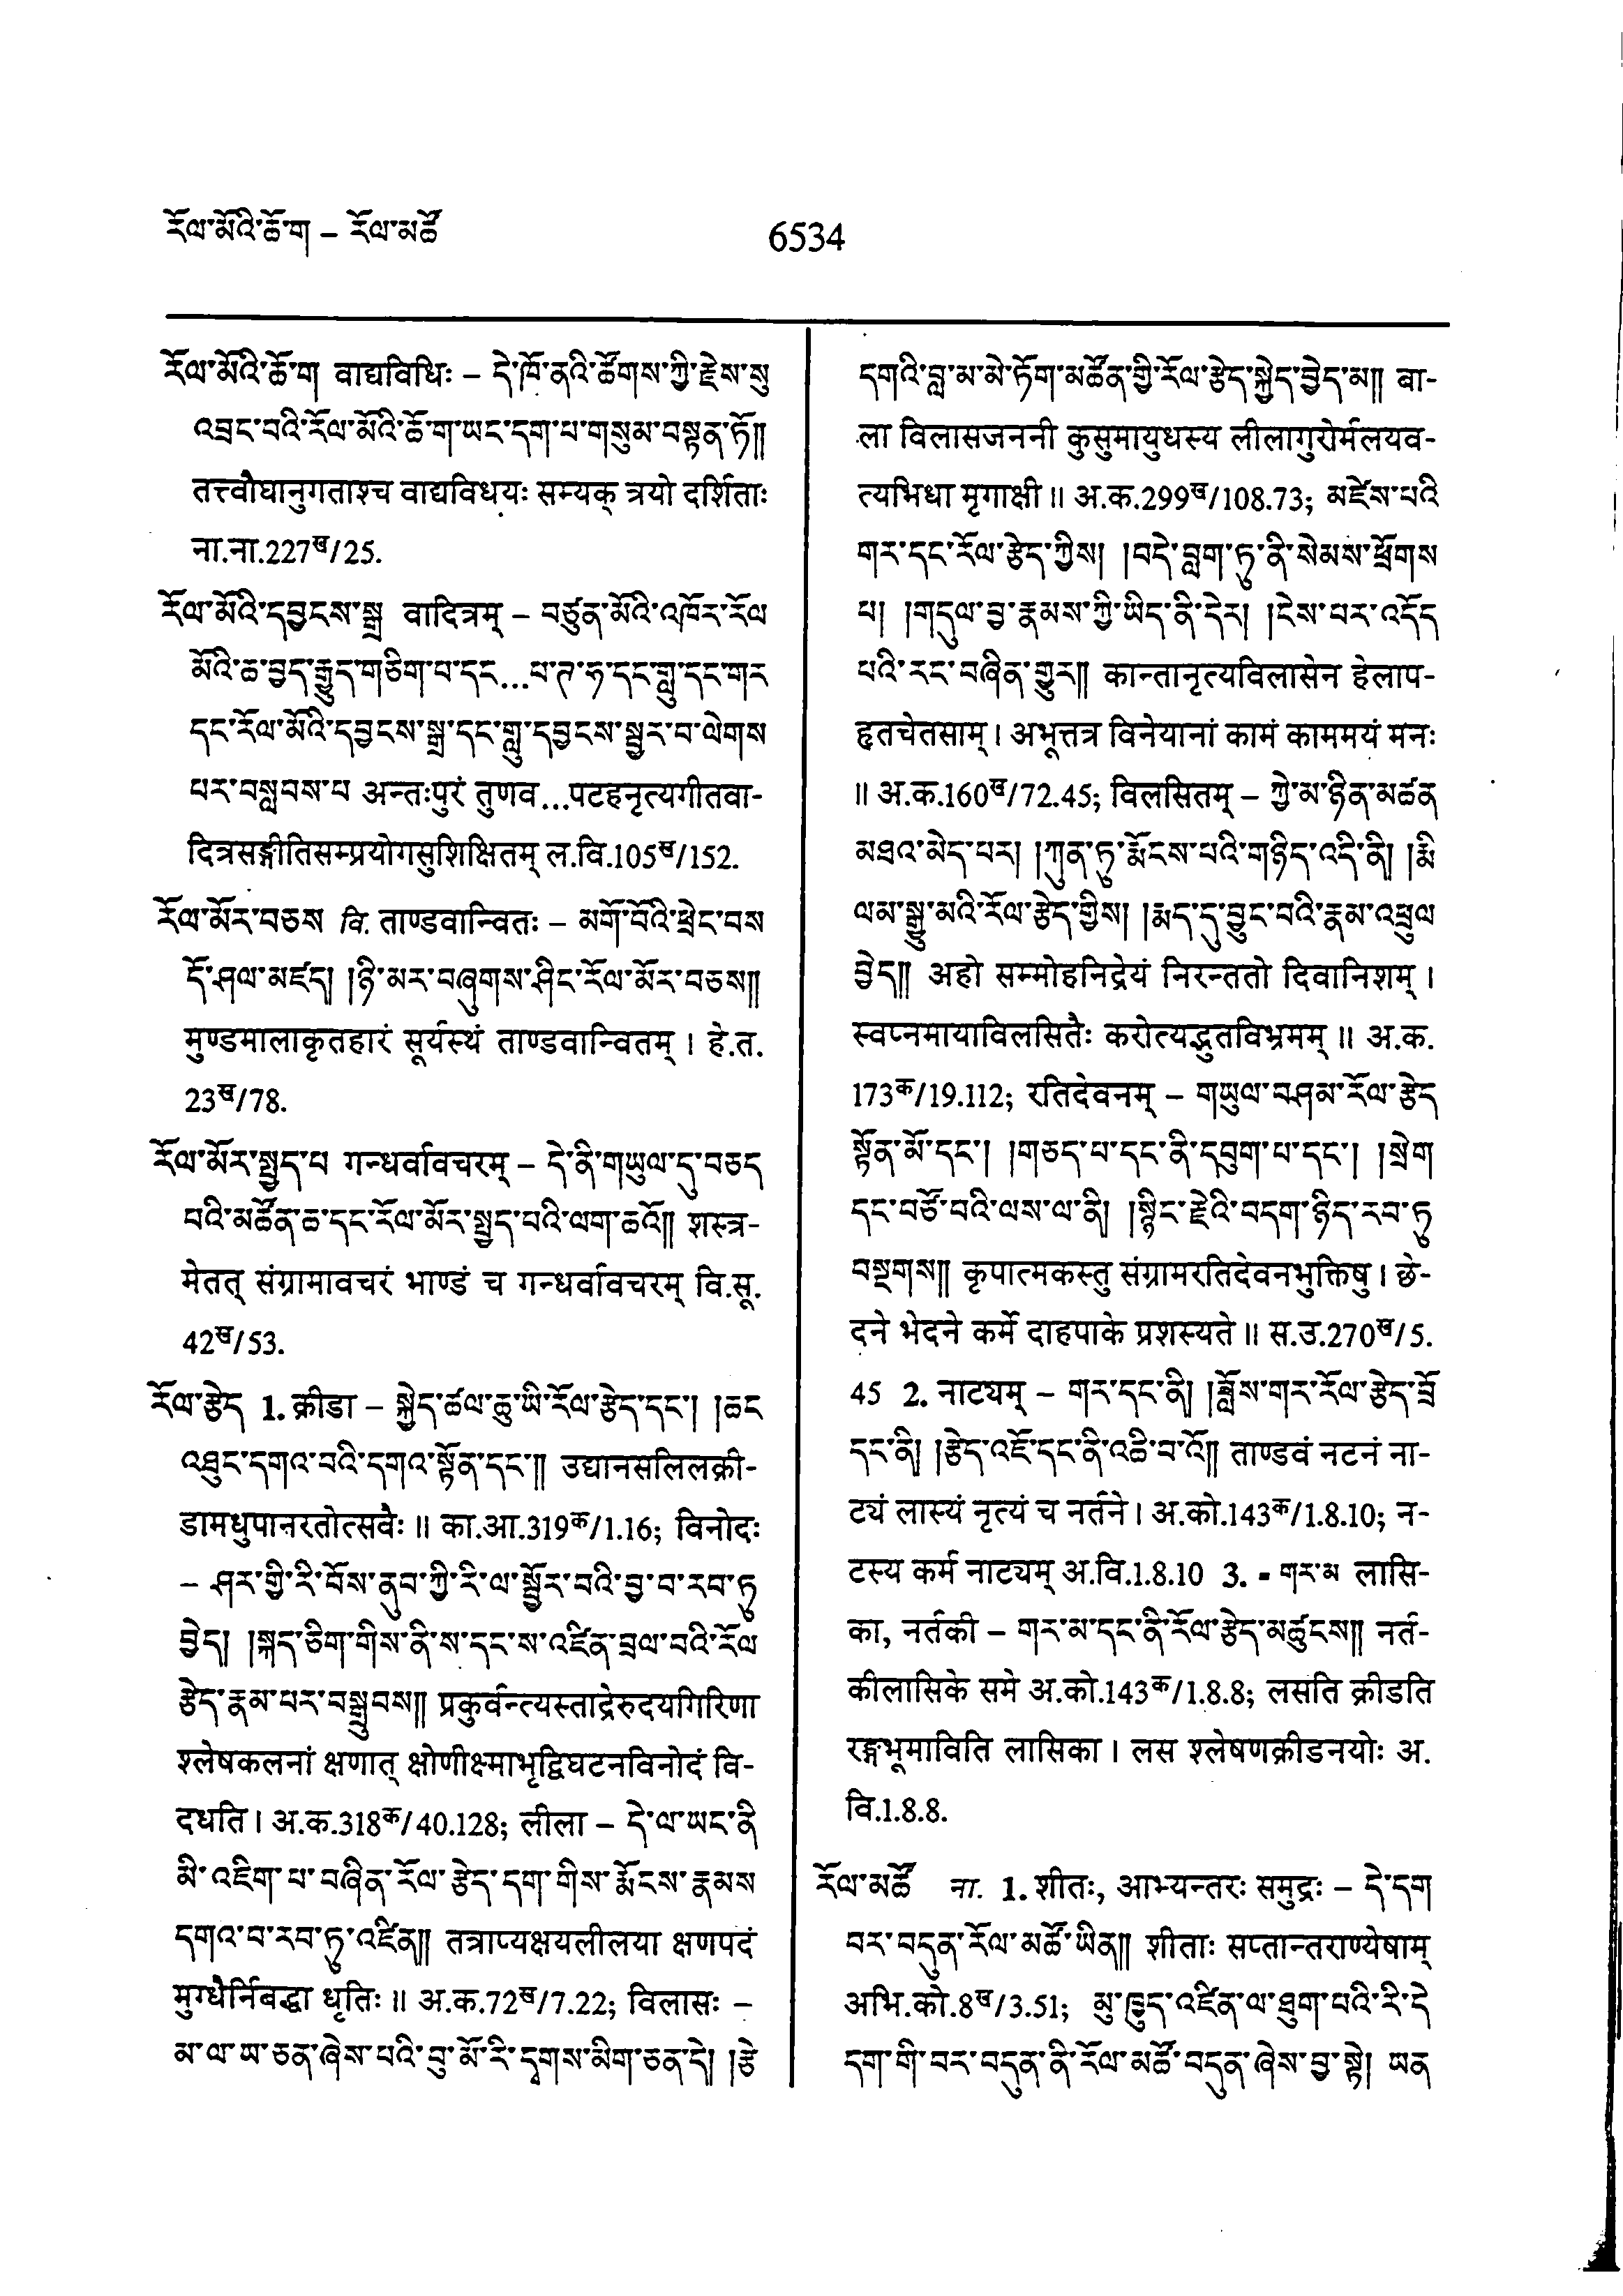 རོལ་མོའི་ཆོ་ག – རོལ་མཚོ
6534
རོལ་མོའི་ཆོ་ག वाद्यविधिः – དེ་ཁོ་ནའི་ཚོགས་ཀྱི་རྗེས་སུ
འབྲང་བའི་རོལ་མོའི་ཆོ་ག་ཡང་དག་པ་གསུམ་བསྟན་ཏོ།།
तत्त्वौघानुगताश्च वाद्यविधयः सम्यक् त्रयो दर्शिताः
ना.ना.227ख/25.
རོལ་མོའི་དབྱངས་སྒྲ वादित्रम् – བཙུན་མོའི་འཁོར་རོལ
མོའི་ཆ་བྱད་རྒྱུད་གཅིག་པ་དང...པ་ཊ་ཧ་དང་གླུ་དང་གར
དང་རོལ་མོའི་དབྱངས་སྒྲ་དང་གླུ་དབྱངས་སྦྱར་བ་ལེགས
པར་བསླབས་པ अन्तःपुरं तुणव...पटहनृत्यगीतवा-
दित्रसङ्गीतिसम्प्रयोगसुशिक्षितम् ल.वि.105ख/152.
རོལ་མོར་བཅས वि. ताण्डवान्वितः – མགོ་བོའི་ཕྲེང་བས
དོ་ཤལ་མཛད། །ཉི་མར་བཞུགས་ཤིང་རོལ་མོར་བཅས།།
मुण्डमालाकृतहारं सूर्यस्थं ताण्डवान्वितम् । हे.त.
23ख/78.
རོལ་མོར་སྤྱད་པ गन्धर्वावचरम् – དེ་ནི་གཡུལ་དུ་བཅད
པའི་མཚོན་ཆ་དང་རོལ་མོར་སྤྱད་པའི་ལག་ཆའོ།། शस्त्र-
मेतत् संग्रामावचरं भाण्डं च गन्धर्वावचरम् वि.सू.
42ख/53.
རོལ་རྩེད 1. क्रीडा – སྐྱེད་ཚལ་ཆུ་ཡི་རོལ་རྩེད་དང་། །ཆང
འཐུང་དགའ་བའི་དགའ་སྟོན་དང་།། उद्यानसलिलक्री-
डामधुपानरतोत्सवैः ॥ का.आ.319क/1.16; विनोदः
– ཤར་གྱི་རི་བོས་ནུབ་ཀྱི་རི་ལ་སྦྱོར་བའི་བྱ་བ་རབ་ཏུ
བྱེད། །སྐད་ཅིག་གིས་ནི་ས་དང་ས་འཛིན་བྲལ་བའི་རོལ
རྩེད་རྣམ་པར་བསྒྲུབས།། प्रकुर्वन्त्यस्ताद्रेरुदयगिरिणा
श्लेषकलनां क्षणात् क्षोणीक्ष्माभृद्विघटनविनोदं वि-
दधति । अ.क.318क/40.128; लीला – དེ་ལ་ཡང་ནི
མི་འཇིག་པ་བཞིན་རོལ་རྩེད་དག་གིས་རྨོངས་རྣམས
དགའ་བ་རབ་ཏུ་འཛིན།། तत्राप्यक्षयलीलया क्षणपदं
मुग्धैर्निबद्धा धृतिः ॥ अ.क.72ख/7.22; विलासः –
མ་ལ་ཡ་ཅན་ཞེས་པའི་བུ་མོ་རི་དྭགས་མིག་ཅན་དེ། །རྩེ
དགའི་བླ་མ་མེ་ཏོག་མཚོན་གྱི་རོལ་རྩེད་སྐྱེད་བྱེད་མ།། बा-
ला विलासजननी कुसुमायुधस्य लीलागुरोर्मलयव-
त्यभिधा मृगाक्षी ॥ अ.क.299ख/108.73; མཛེས་པའི
གར་དང་རོལ་རྩེད་ཀྱིས། །བདེ་བླག་ཏུ་ནི་སེམས་ཕྲོགས
པ། །གདུལ་བྱ་རྣམས་ཀྱི་ཡིད་ནི་དེར། །ངེས་པར་འདོད
པའི་རང་བཞིན་གྱུར།། कान्तानृत्यविलासेन हेलाप-
हृतचेतसाम् । अभूत्तत्र विनेयानां कामं काममयं मनः
॥ अ.क.160ख/72.45; विलसितम् – ཀྱེ་མ་ཉིན་མཚན
མཐའ་མེད་པར། །ཀུན་ཏུ་རྨོངས་པའི་གཉིད་འདི་ནི། །རྨི
ལམ་སྒྱུ་མའི་རོལ་རྩེད་གྱིས། །རྨད་དུ་བྱུང་བའི་རྣམ་འཕྲུལ
བྱེད།། अहो सम्मोहनिद्रेयं निरन्ततो दिवानिशम् ।
स्वप्नमायाविलसितैः करोत्यद्भुतविभ्रमम् ॥ अ.क.
173क/19.112; रतिदेवनम् – གཡུལ་བཤམ་རོལ་རྩེད
སྟོན་མོ་དང་། །གཅད་པ་དང་ནི་དབུག་པ་དང་། །སྲེག
དང་བཙོ་བའི་ལས་ལ་ནི། །སྙིང་རྗེའི་བདག་ཉིད་རབ་ཏུ
བསྔགས།། कृपात्मकस्तु संग्रामरतिदेवनभुक्तिषु । छे-
दने भेदने कर्मे दाहपाके प्रशस्यते ॥ स.उ.270ख/5.
45 2. नाट्यम् – གར་དང་ནི། །ཟློས་གར་རོལ་རྩེད་བྲོ
དང་ནི། །རྩེད་འཇོ་དང་ནི་འཆི་བ་འོ།། ताण्डवं नटनं ना-
ट्यं लास्यं नृत्यं च नर्तने । अ.को.143क/1.8.10; न-
टस्य कर्म नाट्यम् अ.वि.1.8.10 3. ॰ གར་མ लासि-
का, नर्तकी – གར་མ་དང་ནི་རོལ་རྩེད་མཚུངས།། नर्त-
कीलासिके समे अ.को.143क/1.8.8; लसति क्रीडति
रङ्गभूमाविति लासिका । लस श्लेषणक्रीडनयोः अ.
वि.1.8.8.
རོལ་མཚོ ना. 1. शीतः, आभ्यन्तरः समुद्रः – དེ་དག
བར་བདུན་རོལ་མཚོ་ཡིན།། शीताः सप्तान्तराण्येषाम्
अभि.को.8ख/3.51; མུ་ཁྱུད་འཛིན་ལ་ཐུག་པའི་རི་དེ
དག་གི་བར་བདུན་ནི་རོལ་མཚོ་བདུན་ཞེས་བྱ་སྟེ། ཡན